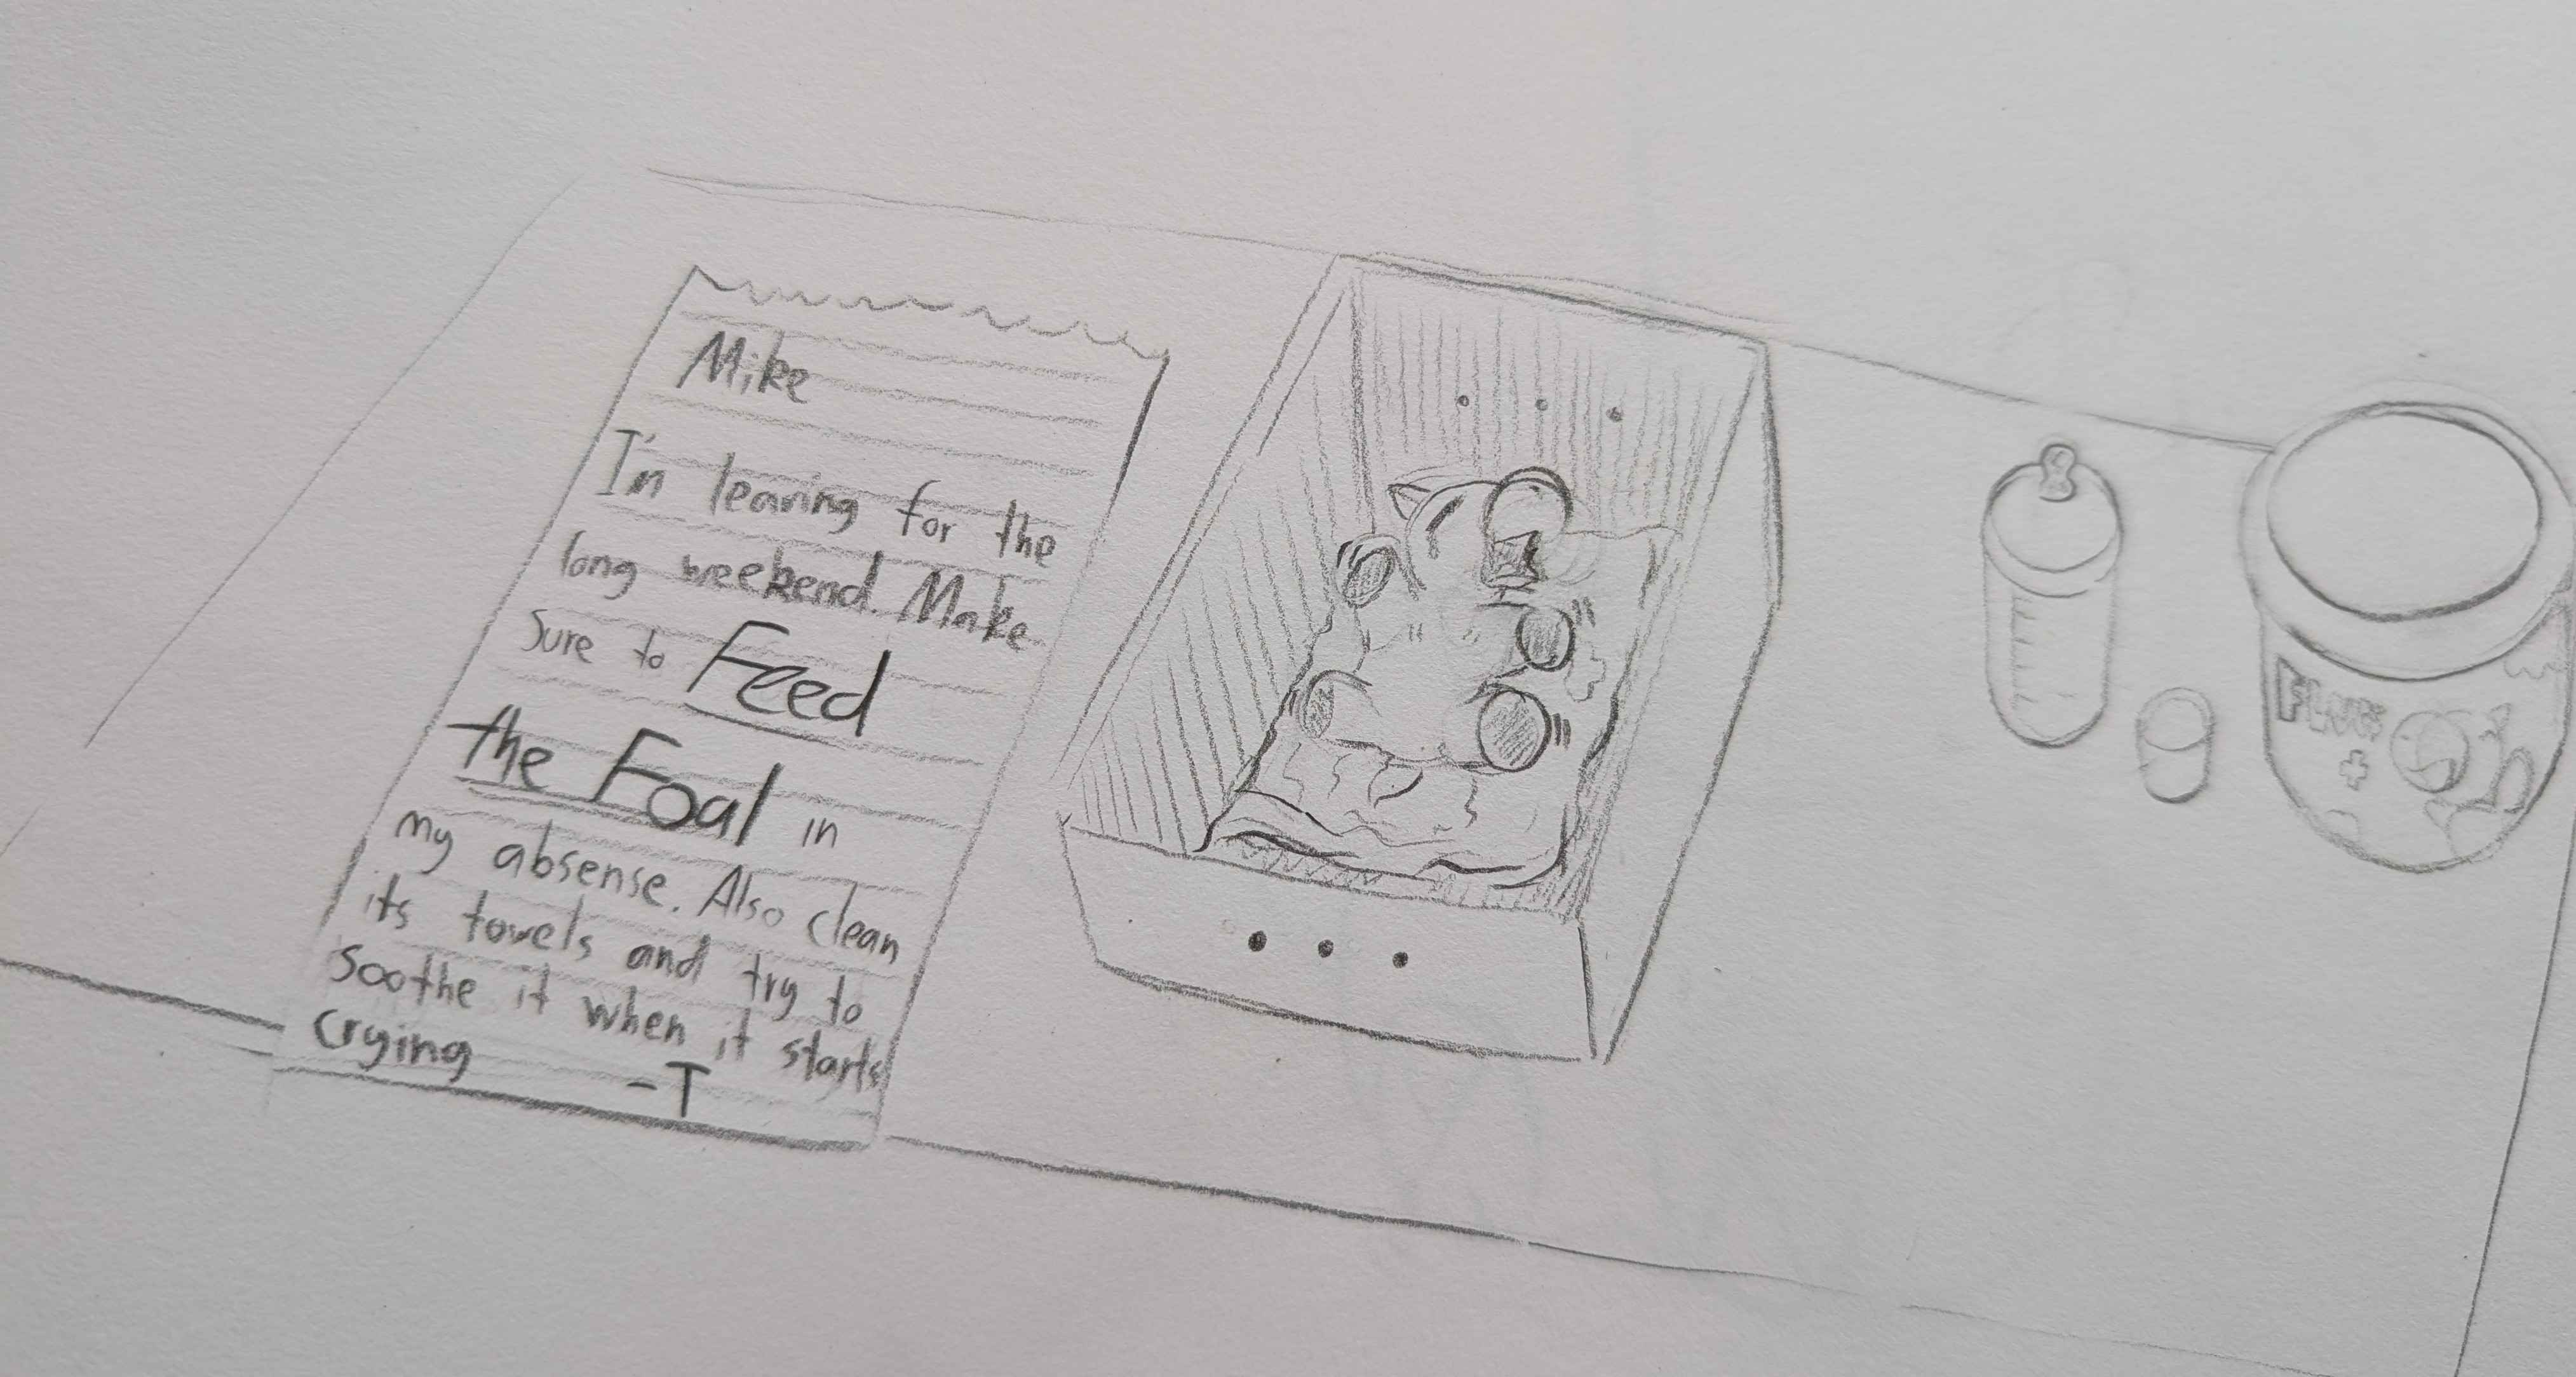 Mike
I'm leaving for the
long weekend. Make
Sure to Feed
the Foal in
my absense. Also clean
its towels and try to
soothe it when it starts
crying -T